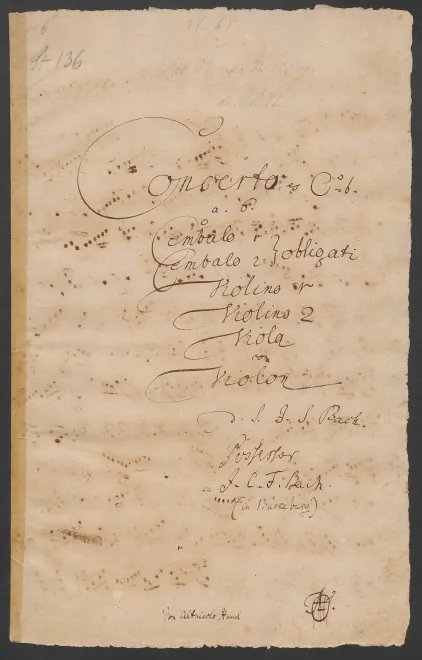 St 136
Concerto. ex C♮b.
a. 6.
Cembalo 1
Cembalo 2 } obligati
Violino 1
Violino 2
Viola
con
Violon
d. S. J. S. Bach.
Possessor
J. C. F. Bach.
(in Bückeburg)
Von Altnicols Hand